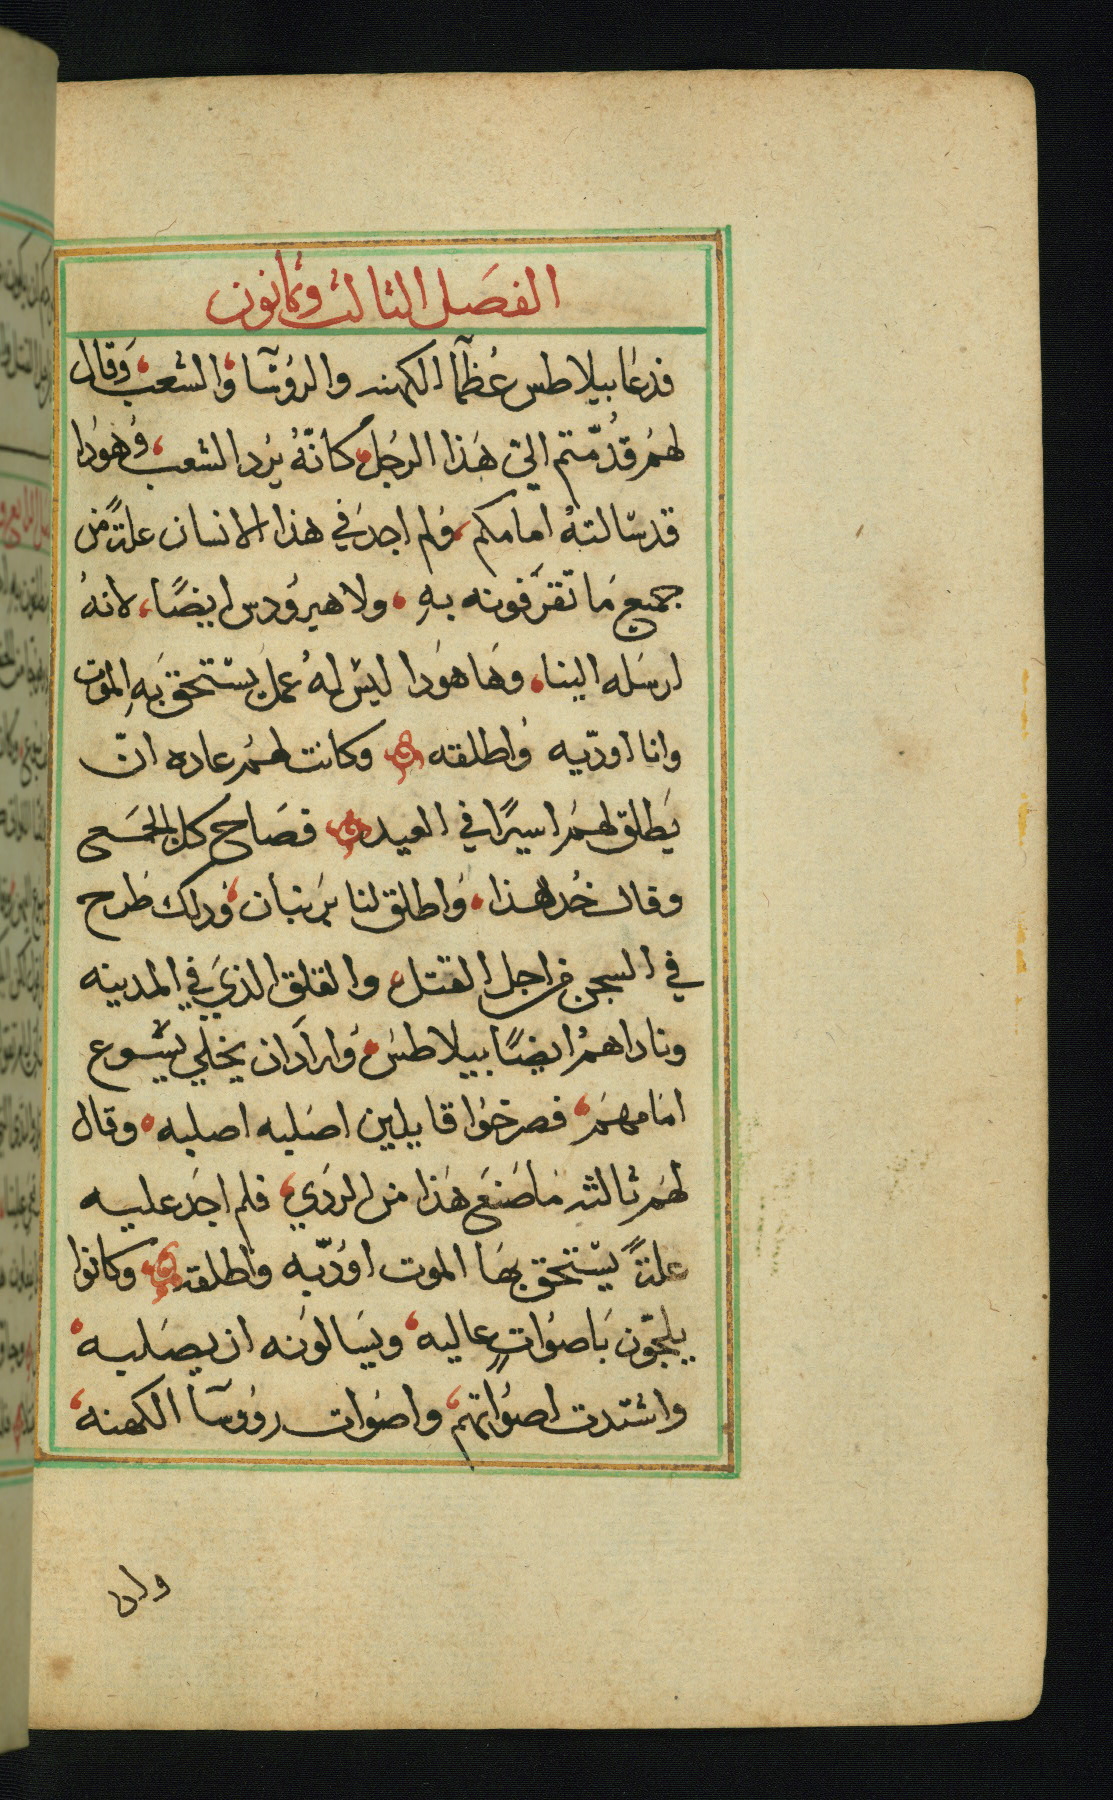 الفصل الثالث وثمانون
فدعا بيلاطس عُظمآ الكهنه والروُسَآ والشعب وَقال
لهُم قدُمّتم اليَّ هَذا الرجُل كانّهُ يَرد الشعب وُهوَدا
قد سَالتهُ امامكم وَلم اجدَ في هذا الانسان علةً من
جميع مَا تقرَفونه بهِ ولا هيروُدس ايضًا لانهُ
ارسَله الينا وَهَا هوَدا ليسَ لهُ عمل يَستحق بَهِ الموت
وانا اودّبه وُاطلقه وكانت لهُم عاده انّ
يَطلق لهمَ اسيرًا في العيد فصَاح كل الجمَع
وقال خُد هذا وَاطلق لنا بَرنبان وَدلك طَرح
في السجن من اجل القتل والقلق الذيَ في المدينه
وناداهمُ ايضًا بيلاطسَ وَارادَ ان يخلي يسَوع
امَامهمَ فصرخوُا قايلين اصَلبه اصلبه وقال
لهمَ ثالثه مَا صَنعَ هَذا من الردَي فلم اجَد عليه
علةً يسَتحق بهَا الموت اوُدّبه وَاطلقه وكانوا
يلجّون بَاصوَاتٍ عاليه ويسَالوُنه ان يصَلبه
واشتدت اصوُاتهم واصوَات روُوسَآ الكهنه
ولان